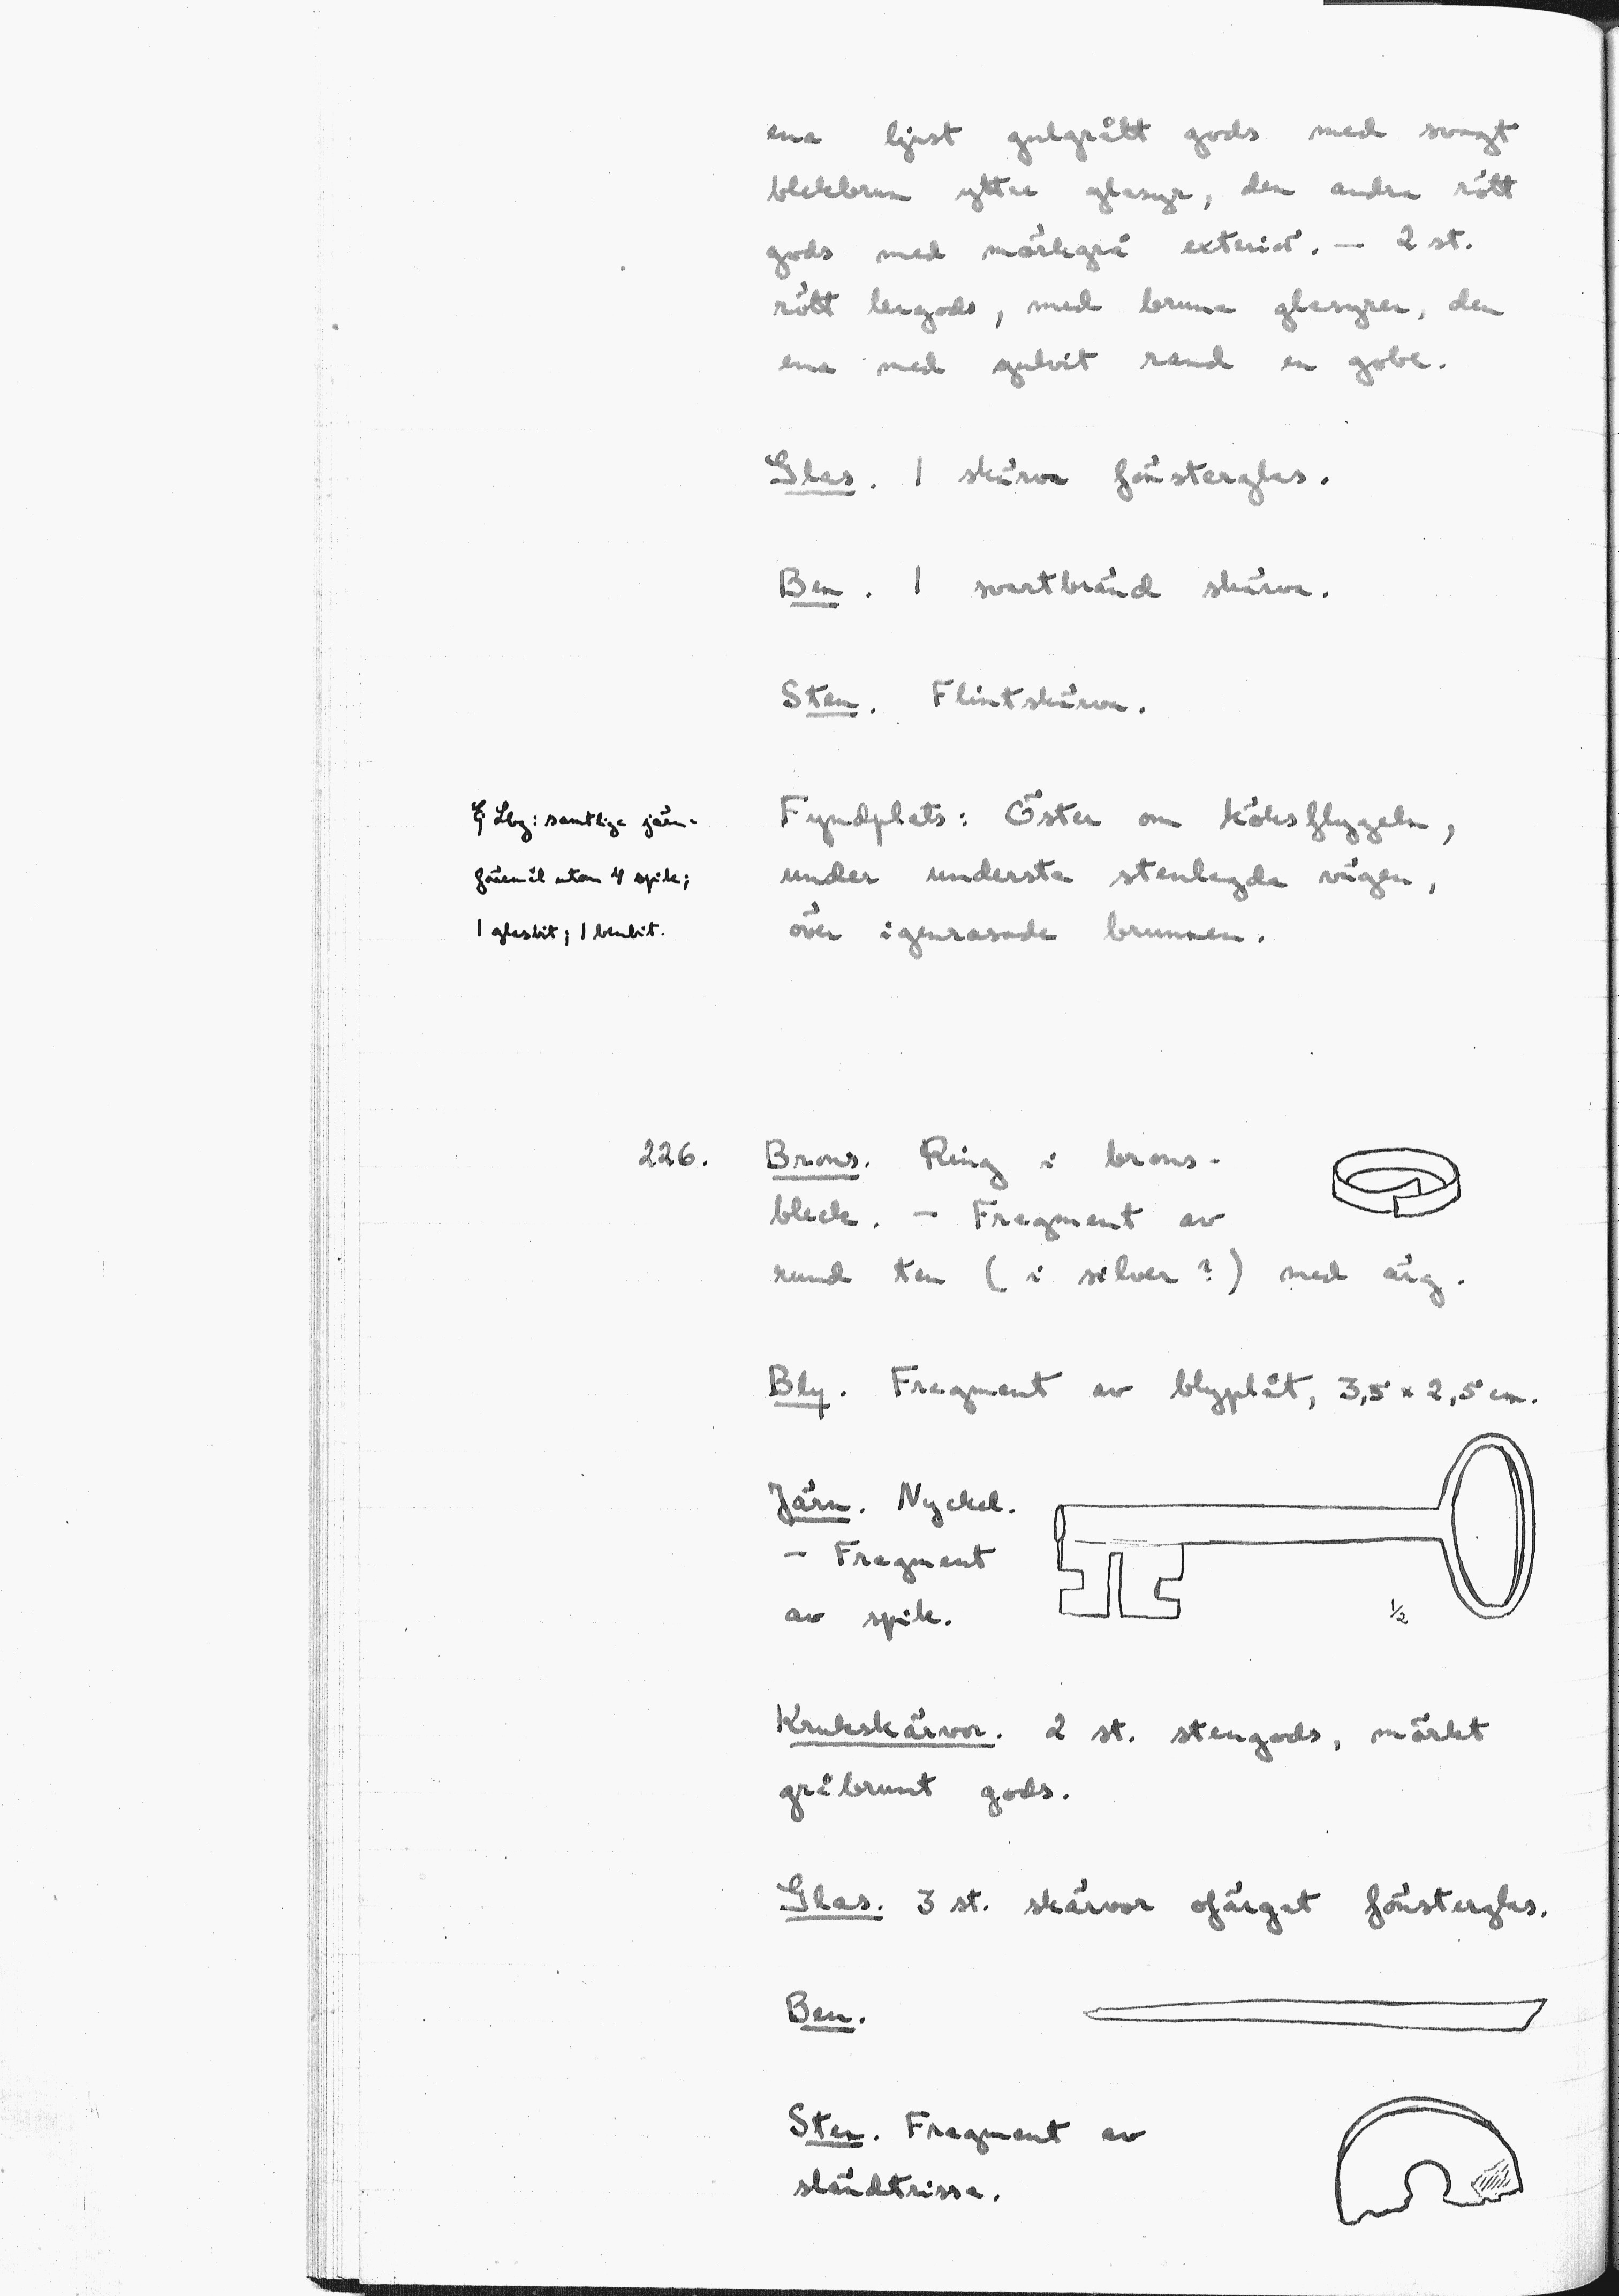 ena ljust gulgrått gods med svagt
blekbrun yttre glasyr, den andra rött
gods med mörkgrå exteriör. — 2 st.
rött lergods, med bruna glasyrer, den
ena med gulvit rand en gobe.
Glas. 1 skärva fönsterglas.
Ben. 1 svartbränd skärva.
Sten. Flintskärva.
Fyndplats: Öster om köksflygeln,
under understa stenlagda vägen,
över igenrasade brunnen.
Lbg: samtliga järn-
föremål utom 4 spik;
1 glasbit; 1 benbit.
226. Brons. Ring i brons-
bleck. — Fragment av
rund ten (i silver?) med ärg.
Bly. Fragment av blyplåt, 3,5 × 2,5 cm.
Järn. Nyckel.
— Fragment
av spik.
1/2
Krukskärvor. 2 st. stengods, mörkt
gråbrunt gods.
Glas. 3 st. skärvor ofärgat fönsterglas.
Ben.
Sten. Fragment av
sländtrissa.